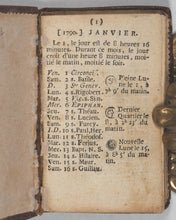 (1)
[1790.] JANVIER.
Le 1, le jour est de 8 heures 16
minutes. Durant ce mois, le jour
croît d'une heure 8 minutes, moi-
tié matin, moitié le soir.
Ven. 1 Circonci.
Sam. 2 s. Basile.
D. 3 Ste Genev.
Lun. 4 s. Rigobert.
Mar. 5
Mer. 6 EPIPHAN.
Jeu. 7 s. Théau.
Ven. 8 s. Lucien.
Sam. 9 s. Furcy.
D. 10 s. Paul, Her.
Lun. 11 s. Théod.
Mar. 12 s.
Mer. 13 Bapt. N. S.
Jeu. 14 s. Hilaire.
Ven. 15 s. Maur.
Sam. 16 s. Guillau.
Pleine Lu-
ne le 1, à
du matin.
Dernier
Quartier le
8, à 2h 25'
du matin.
Nouvelle
Lune le 15,
à 8h 5' du
matin.